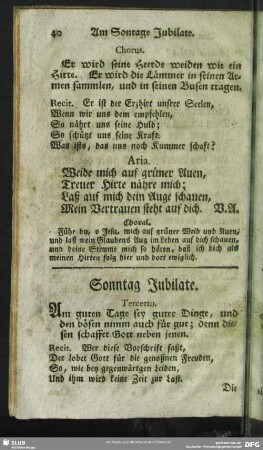 40 Am Sontage Jubilate.
Chorus.
Er wird seine Heerde weiden wie ein
Hirte. Er wird die Lämmer in seinen Ar-
men sammlen, und in seinen Busen tragen.
Recit. Er ist der Erzhirt unsrer Seelen,
Wenn wir uns dem empfehlen,
So nährt uns seine Huld;
So schützt uns seine Kraft.
Was ists, das uns noch Kummer schaft?
Aria.
Weide mich auf grüner Auen,
Treuer Hirte nähre mich;
Laß auf mich dein Auge schauen,
Mein Vertrauen steht auf dich. V.A.
Choral.
Führ du, o Jesu, mich auf grüner Weid und Auen,
und laß mein Glaubens Aug im Leben auf dich schauen,
und deine Stimme mich so hören, daß ich dich als
meinen Hirten folg hier und dort ewiglich.
Sonntag Jubilate.
Tercetto.
Am guten Tage sey guter Dinge, und
den bösen nimm auch für gut; denn die-
sen schaffet Gott neben jenen.
Recit. Wer diese Vorschrift faßt,
Der lobet Gott für die genoßnen Freuden,
So, wie bey gegenwärtgen Leiden,
Und ihm wird keine Zeit zur Last.
Die
SLUB
DFG